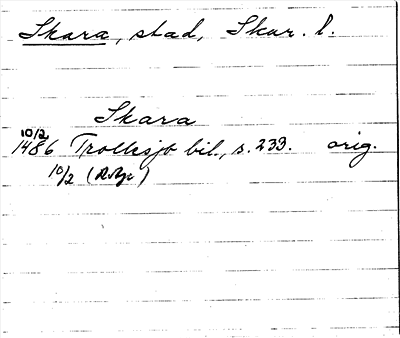 Skara, stad, Skar. l.
Skara
10/2
1486 Trollesjö bil., s. 239. orig.
10/2 (